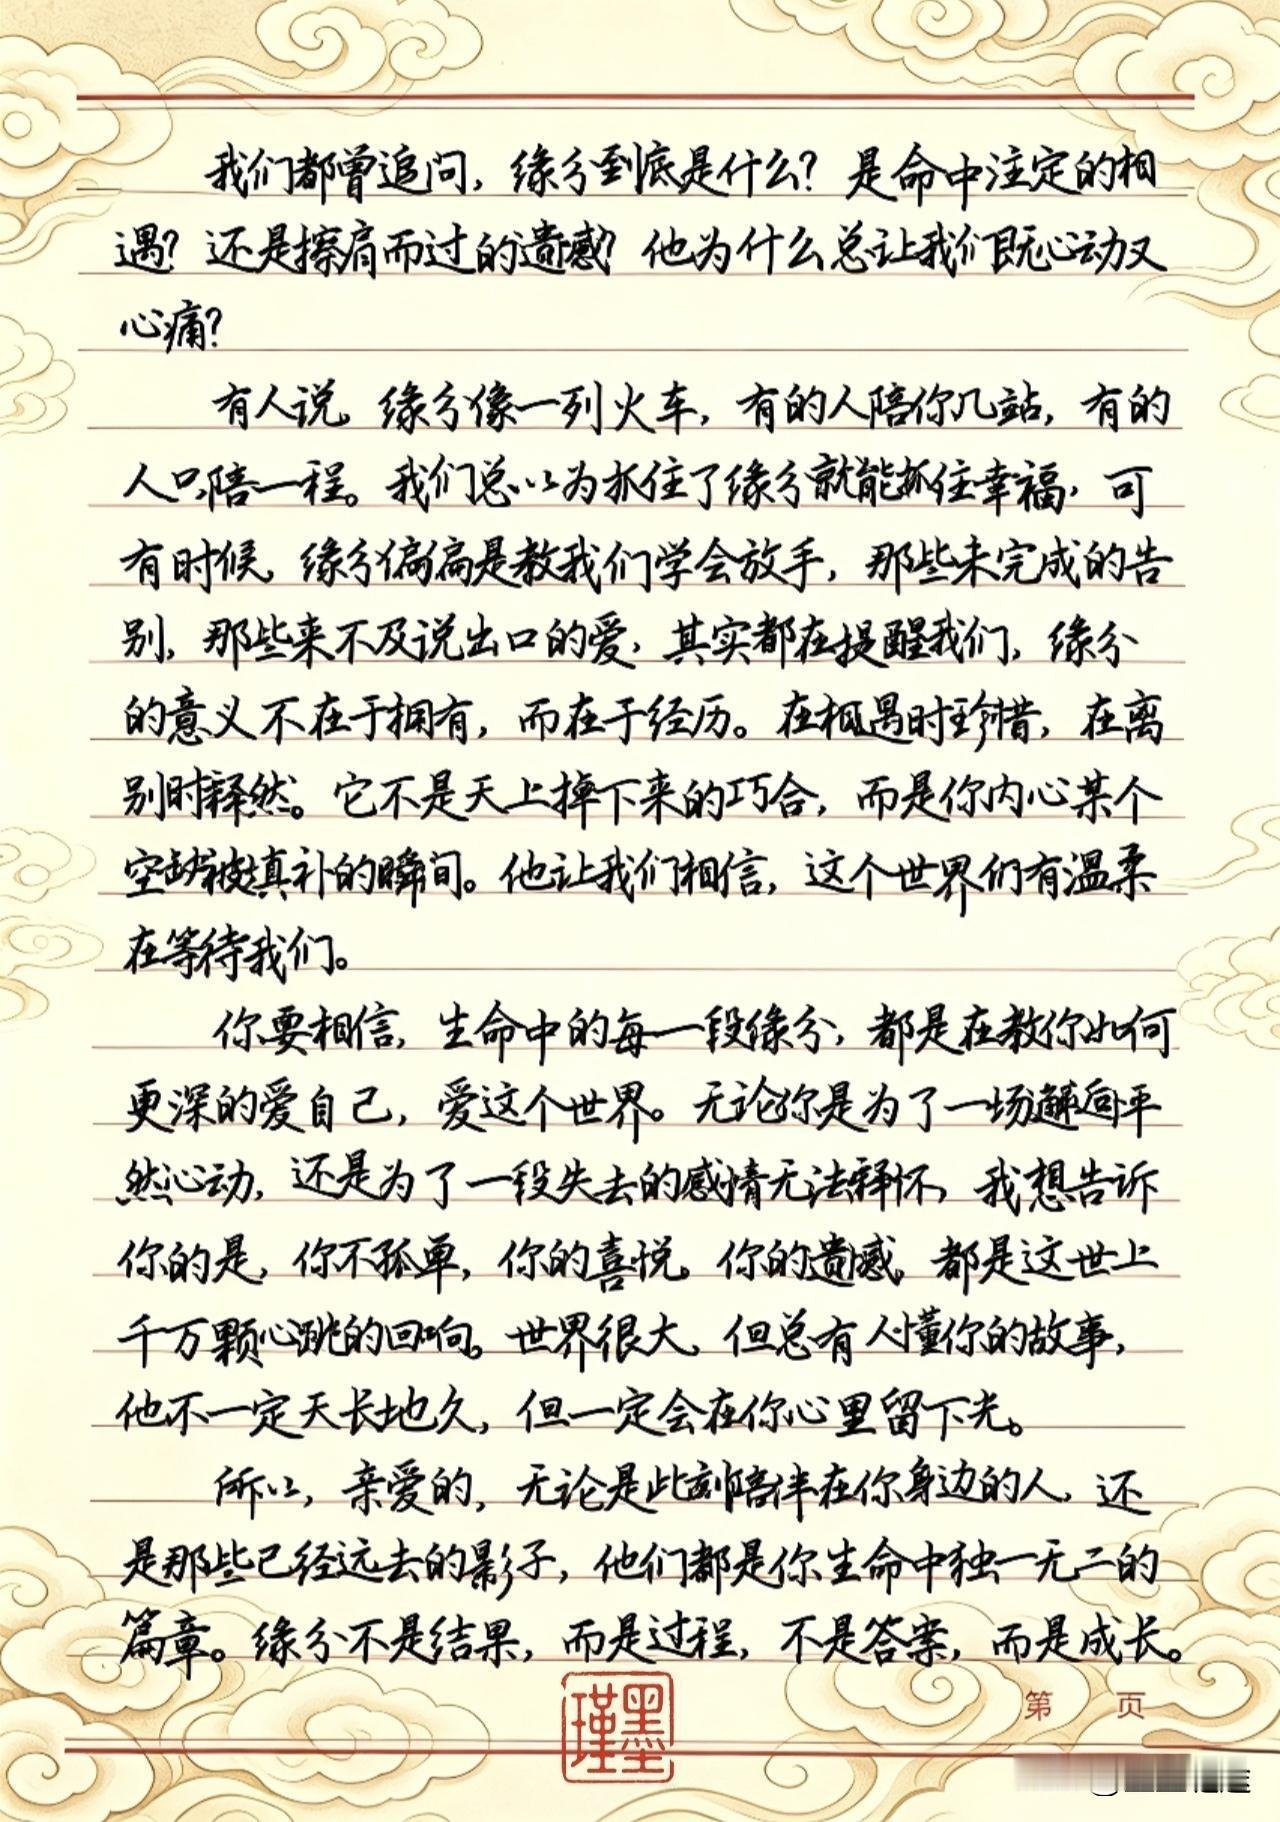 我们都曾追问，缘分到底是什么？是命中注定的相
遇？还是擦肩而过的遗憾？他为什么总让我们既心动又
心痛？
有人说，缘分像一列火车，有的人陪你几站，有的
人只陪一程。我们总以为抓住了缘分就能抓住幸福，可
有时候，缘分偏偏是教我们学会放手，那些未完成的告
别，那些来不及说出口的爱，其实都在提醒我们，缘分
的意义不在于拥有，而在于经历。在相遇时珍惜，在离
别时释然。它不是天上掉下来的巧合，而是你内心某个
空缺被填补的瞬间。他让我们相信，这个世界们有温柔
在等待我们。
你要相信，生命中的每一段缘分，都是在教你如何
更深的爱自己，爱这个世界。无论你是为了一场邂逅平
然心动，还是为了一段失去的感情无法释怀，我想告诉
你的是，你不孤单，你的喜悦。你的遗憾。都是这世上
千万颗心跳的回响。世界很大，但总有人懂你的故事，
他不一定天长地久，但一定会在你心里留下光。
所以，亲爱的，无论是此刻陪伴在你身边的人，还
是那些已经远去的影子，他们都是你生命中独一无二的
篇章。缘分不是结果，而是过程，不是答案，而是成长。
墨瑾
第 页